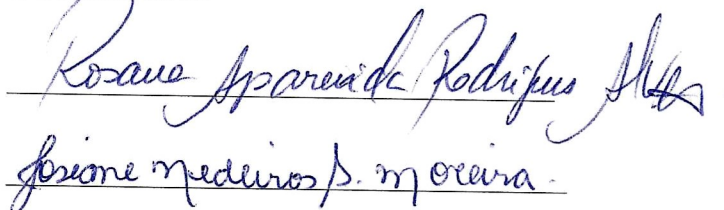 Rosana Aparecida Rodrigues Alves
Josiane Medeiros S. Moreira.